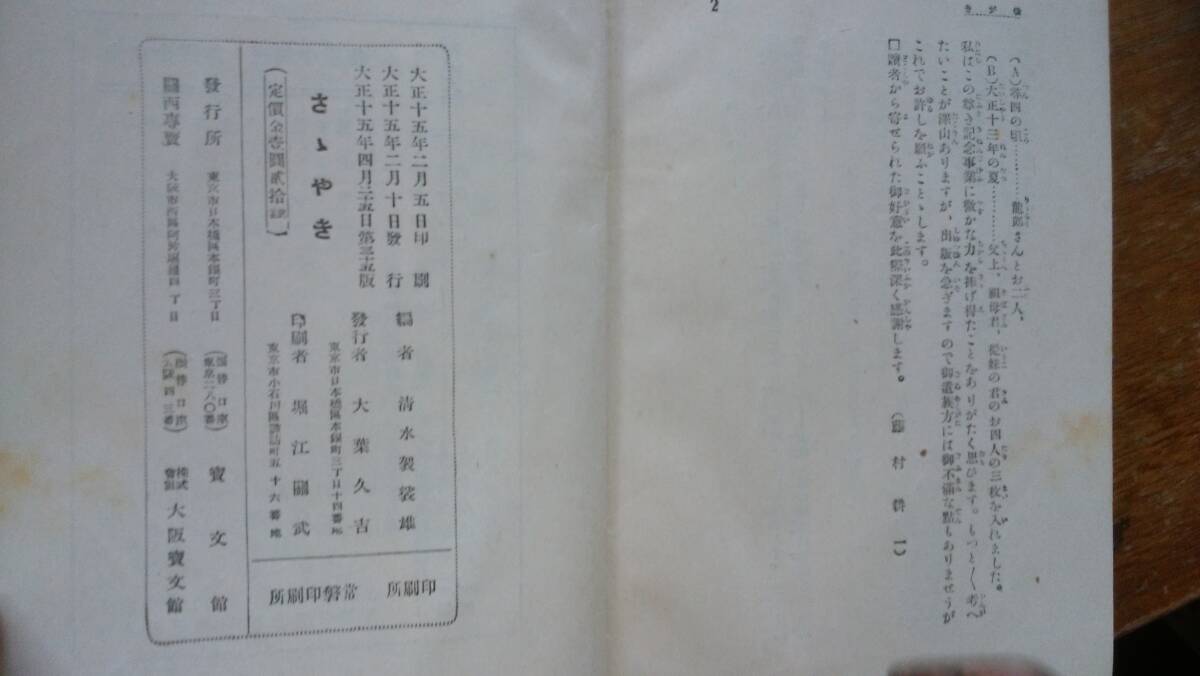 2
(A)尋四の頃………龍郎さんとお二人。
(B)大正十三年の夏………父上、祖母君、從妹の君のお四人の三枚を入れました。
私はこの尊き記念事業に微かな力を捧げ得たことをありがたく思ひます。もつと〳〵考へ
たいことが澤山ありますが、出版を急ぎますので御遺族方には御不滿な點もありませうが
これでお許しを願ふことゝします。
□讀者から寄せられた御好意を此際深く感謝します。(藤村耕一)
大正十五年二月五日印刷
大正十五年二月十日發行
大正十五年四月三十五日第三十五版
さゝやき
(定價金壹圓貳拾錢)
編者 清水袈裟雄
發行者 大葉久吉
東京市日本橋區本銀町三丁目十四番地
印刷者 堀江關武
東京市小石川區諏訪町五十六番地
印刷所 常磐印刷所
發行所 東京市日本橋區本銀町三丁目 (振替口座東京二八〇番) 寶文館
關西專賣 大阪市西區阿波堀通四丁目 (振替口座大阪四三番) 株式會社大阪寶文館